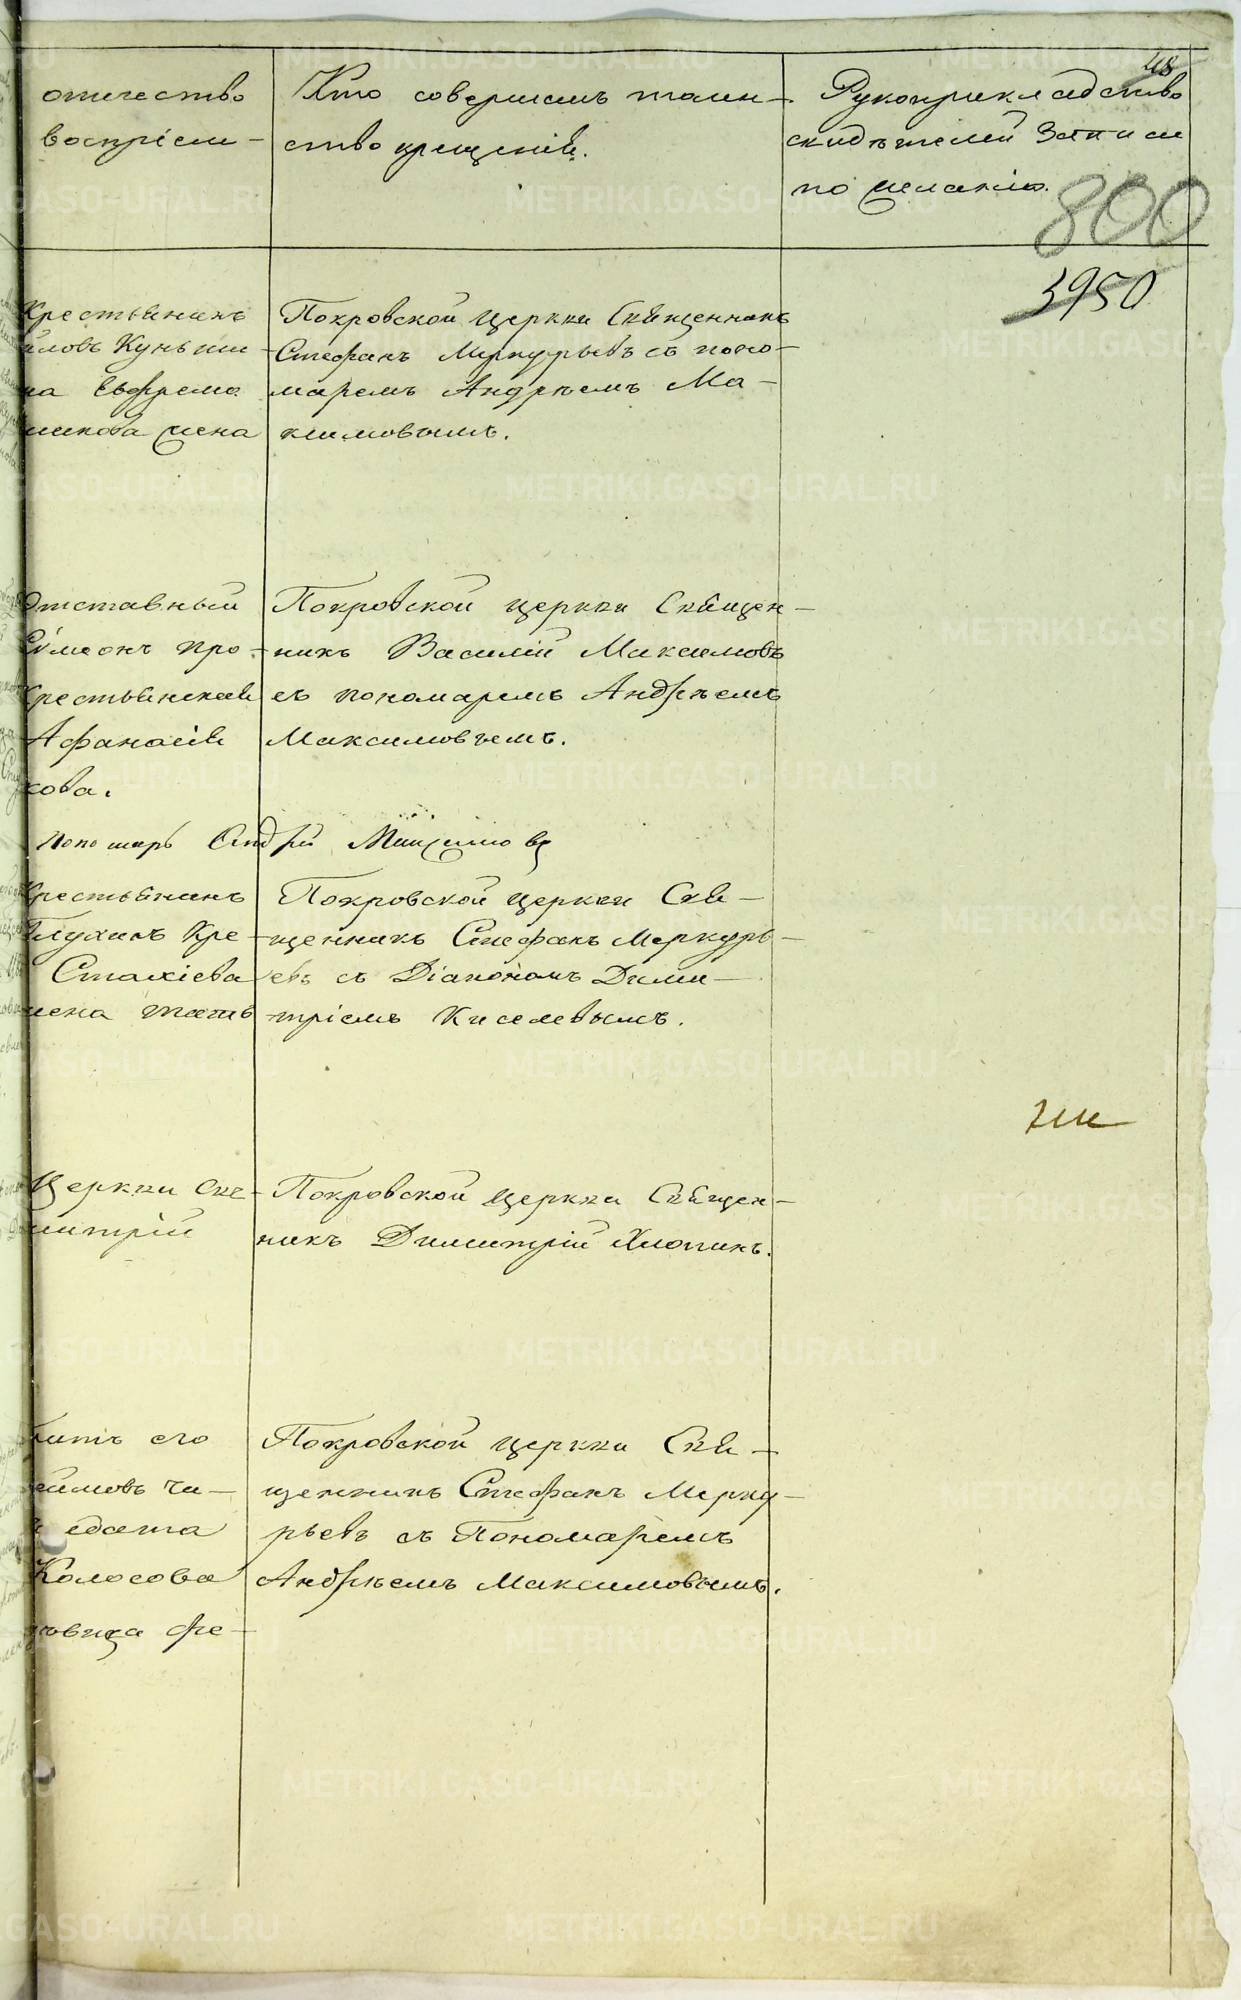 48
отчество
воспрiем-
Кто совершалъ таин-
ство крещенiя.
Рукоприкладство
свидѣтелей записи
по желанiю.
800
3950
Крестьянинъ
иловъ Куньщи-
на Евфрема
жена
Покровской церкви Священникъ
Стефанъ Меркурьевъ съ поно-
маремъ Андрѣемъ Ма-
ксимовымъ.
Отставный
Симеонъ Про-
Крестьянская
Афанасiя
кова.
Покровской церкви Священ-
никъ Василiй Максимовъ
съ пономаремъ Андрѣемъ
Максимовымъ.
пономарь Андрей Максимовъ
Крестьянинъ
Глухихъ Кре-
Стахiева
жена
Покровской церкви Свя-
щенникъ Стефанъ Меркурь-
евъ съ Дiакономъ Дими-
трiемъ Киселевымъ.
Церкви Свя-
митрiй
Покровской церкви Священ-
никъ Димитрiй Хлопинъ.
его
Колосова
Покровской церкви Свя-
щенникъ Стефанъ Мерку-
рьевъ съ Пономаремъ
Андрѣемъ Максимовымъ.
METRIKI.GASO-URAL.RU